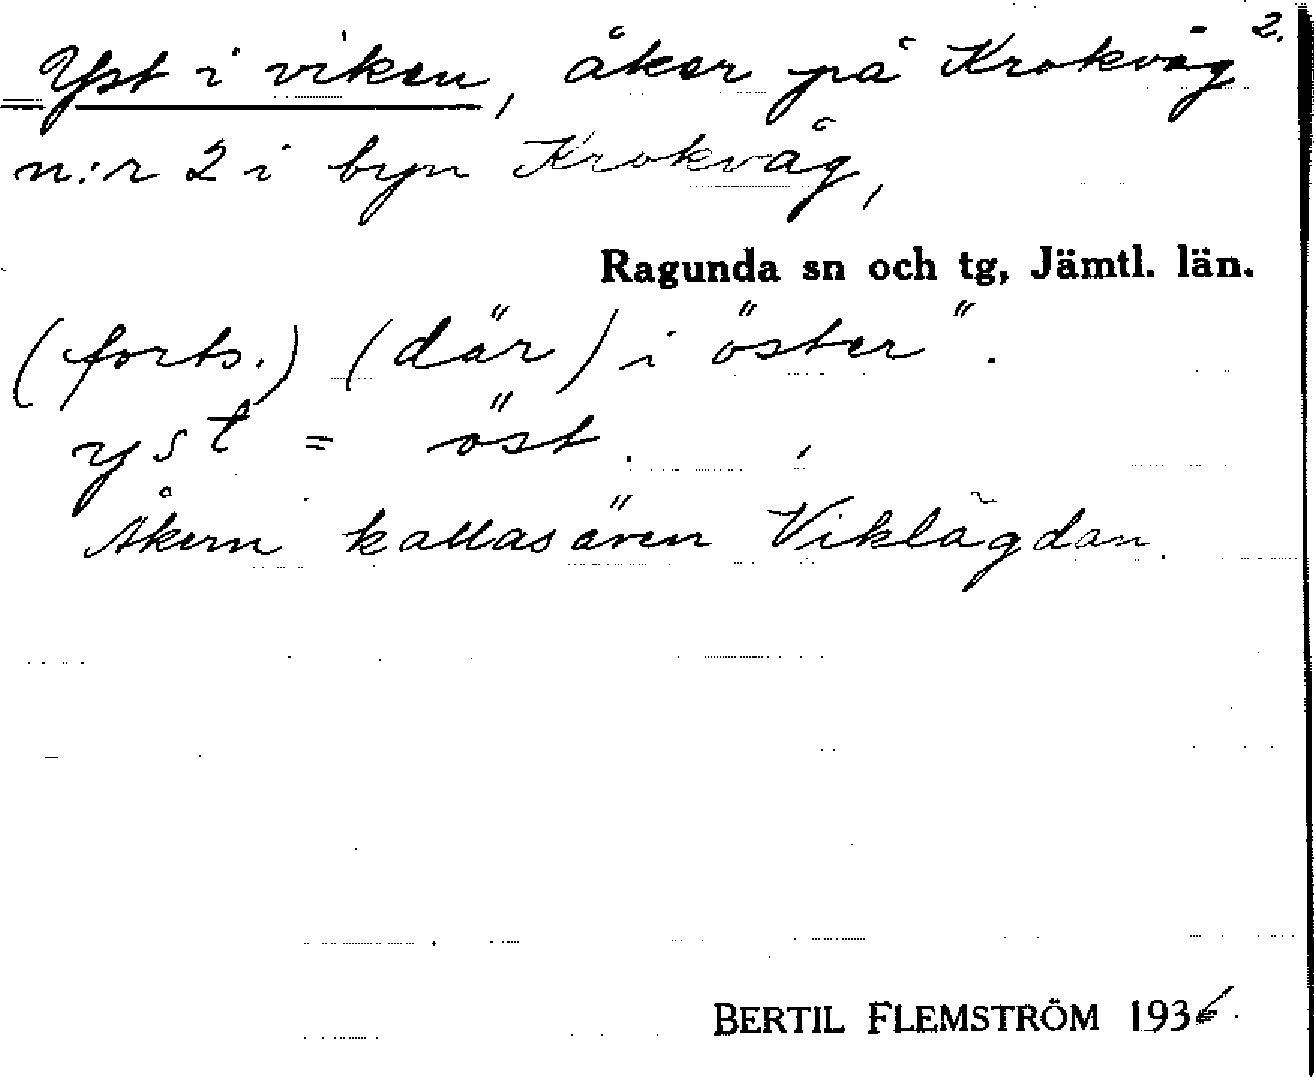 2.
Yst i viken, åker på Krokvåg
n:r 2 i byn Krokvåg,
Ragunda sn och tg, Jämtl. län.
(forts.) (där) i öster".
yst = öst.
Åkern kallas även Viklägdan.
BERTIL FLEMSTRÖM 1936.